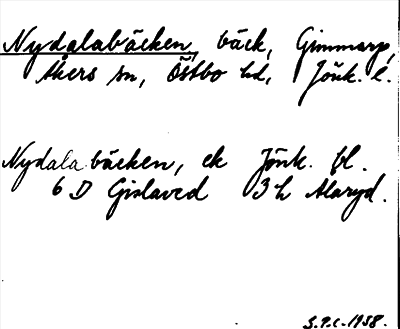 Nydalabäcken, bäck, Gimmarp,
Åkers sn, Östbo hd, Jönk. l.
Nydalabäcken, ek Jönk. bl.
6 D Gislaved 3 h Alaryd.
S.P.C. 1958.